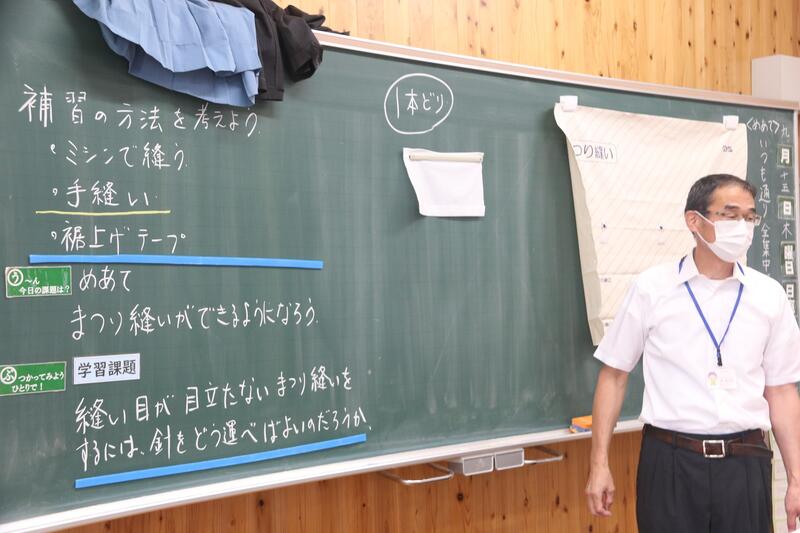 補習の方法を考えよう.
・ミシンで縫う.
・手縫い
・裾上げテープ
う〜ん
今日の課題は?
めあて
まつり縫いができるようになろう.
ぶつかってみよう
ひとりで!
学習課題
縫い目が目立たないまつり縫いを
するには、針をどう運べばよいのだろうか.
1本どり
つり縫い
<めあて>
いつも通り全集中
九月十五日木曜日